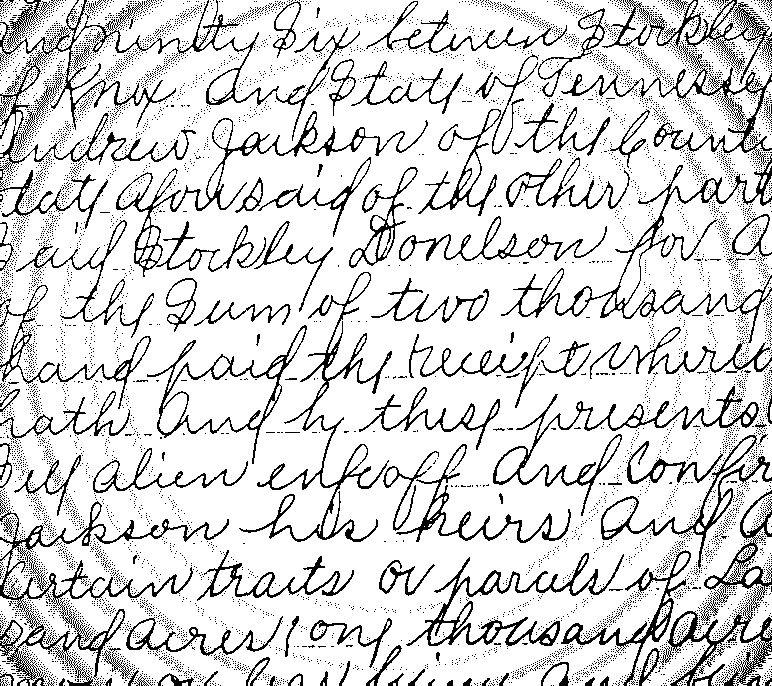 and ninity Six between Stockley
of Knox and State of Tennessee
Andrew Jackson of the County
State aforesaid of the other part
Said Stockley Donelson for a
of the Sum of two thousand
hand paid the receipt where
hath and by these presents
Sell alien enfeoff and confir
Jackson his heirs and a
Certain tracts or parcels of La
sand acres one thousand acre
more or less being and bein